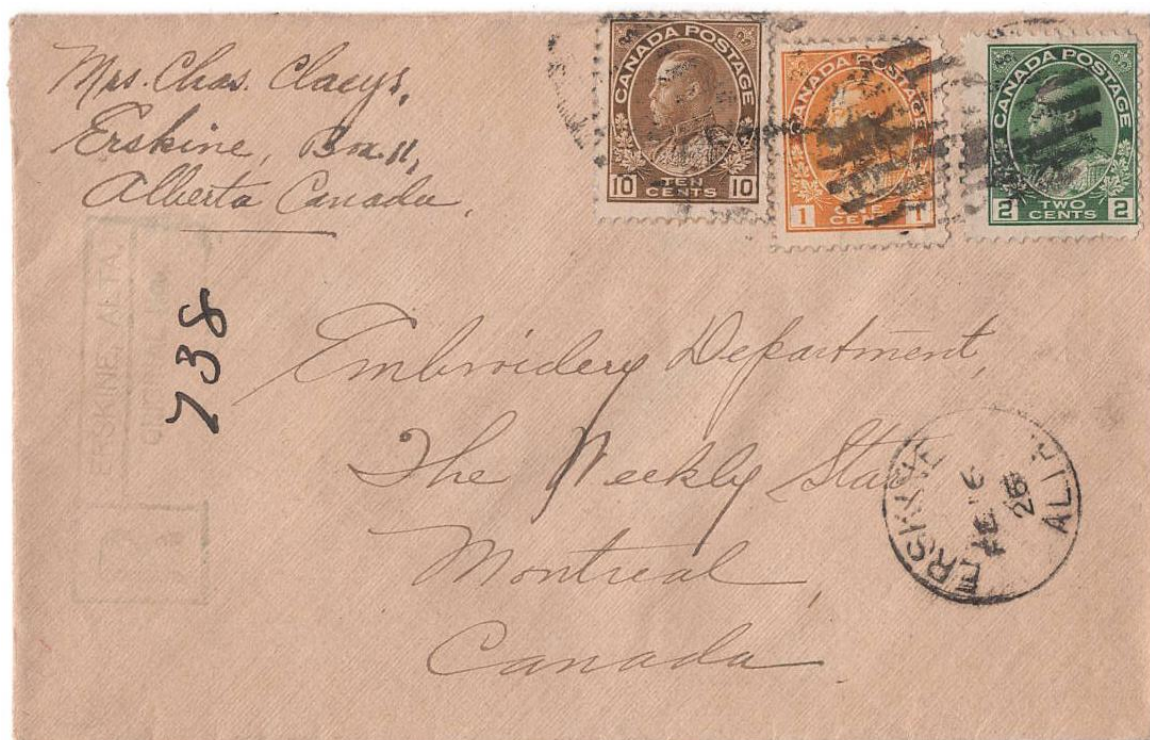 Mrs. Chas. Claeys,
Erskine, Box 11,
Alberta Canada.
CANADA POSTAGE
10 TEN CENTS 10
CANADA POSTAGE
1 ONE CENT 1
CANADA POSTAGE
2 TWO CENTS 2
ERSKINE, ALTA.
R
738
Embroidery Department,
The Weekly Star
Montreal,
Canada.
ERSKINE
FE 16
26
ALTA